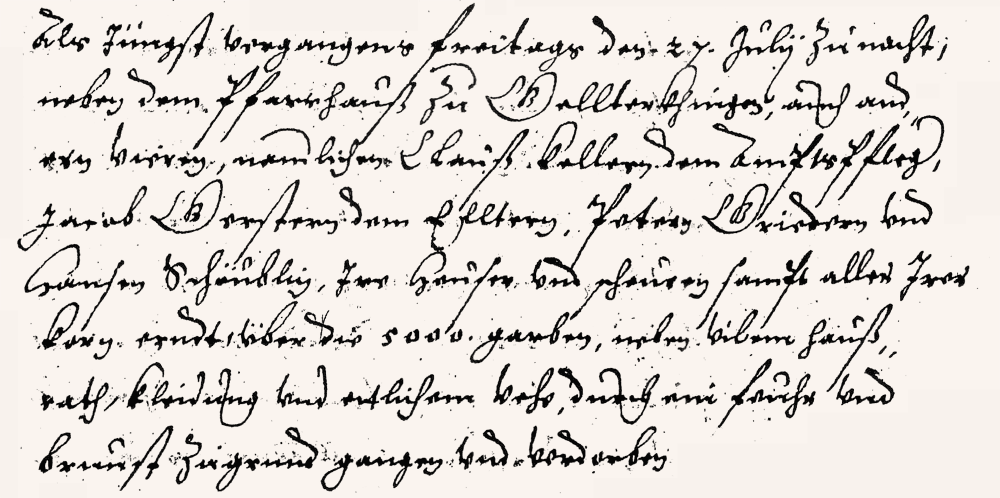 Als Jüngst vergangens freitags den 27. Julij zu nacht,
neben dem Pfarrhauß zu Gellterkhingen, auch and,,
ern vieren, namlichen Clauß kellern dem AmptsPfleg,
Jacob Gerstern dem Elltern, Petern Griedern vnd
Hansen Schäublin, Ire heuser vnd scheuren sampt aller Irer
korn erndt, über die 5000. garben, neben vilem hauß,,
rath, kleidung vnd ettlichem vehe, durch ein feuhr vnd
brunst Zugrund gangen vnd verdorben